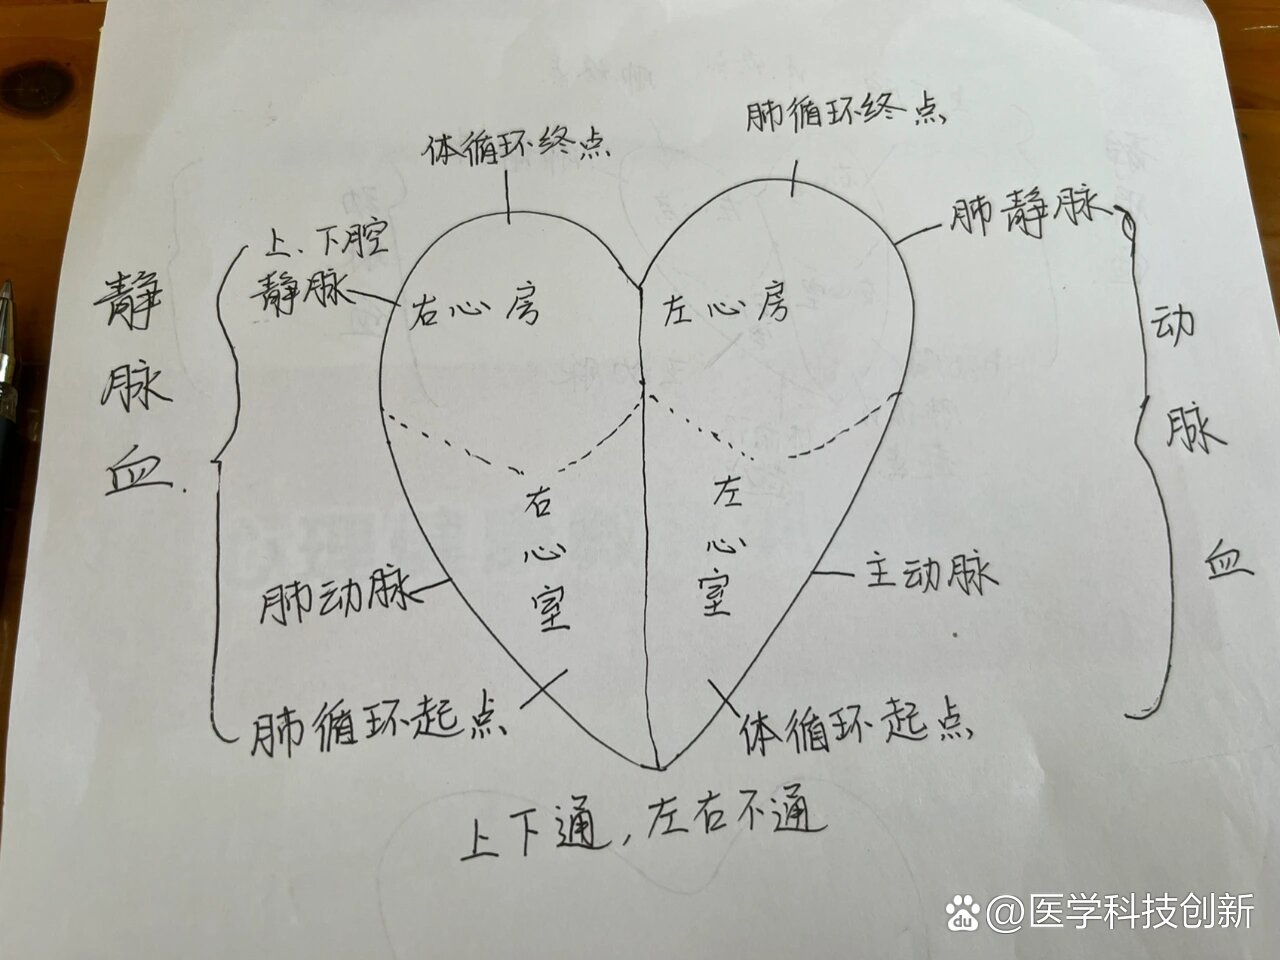 体循环终点
肺循环终点
上、下腔
静脉
肺静脉
静脉血
右心房
左心房
动脉血
右心室
左心室
肺动脉
主动脉
肺循环起点
体循环起点
上下通，左右不通
du @医学科技创新